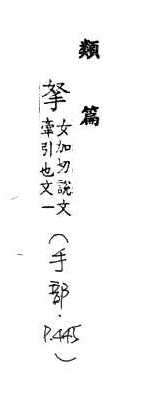 類篇
拏
女加切說文
牽引也文一
(手部·P.445)